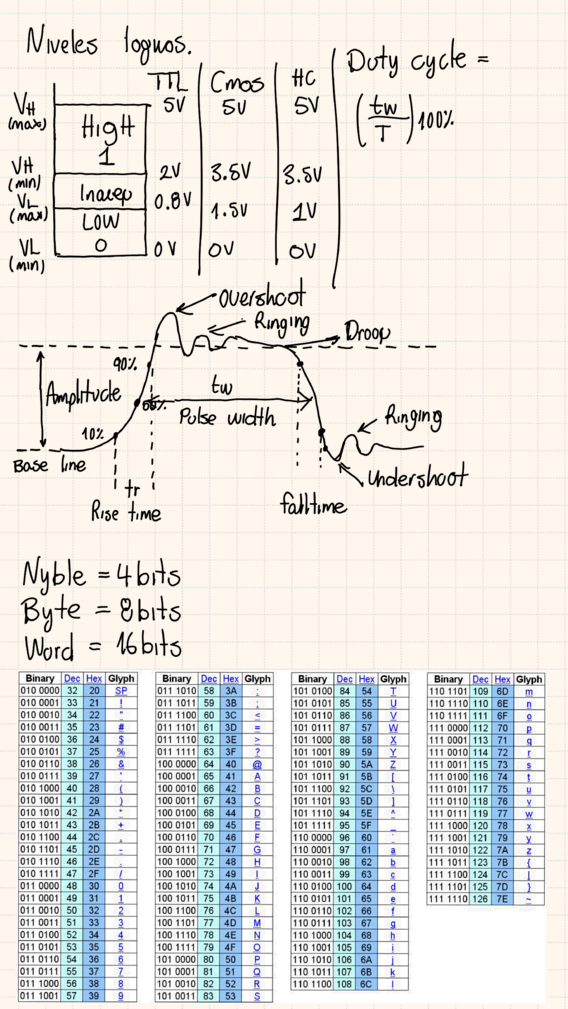 Niveles logicos.
TTL Cmos HC
VH (max) 5V 5V 5V
HIGH
1
VH (min) 2V 3.5V 3.5V
Inacep
VL (max) 0.8V 1.5V 1V
LOW
0
VL (min) 0V 0V 0V
Duty cycle =
(tw/T)100%
Overshoot
Ringing
Droop
90%
Amplitude
50%
tw
Pulse width
Ringing
10%
Base line
Undershoot
tr
Rise time
falltime
Nyble = 4bits
Byte = 8bits
Word = 16bits
Binary Dec Hex Glyph
010 0000 32 20 SP
010 0001 33 21 !
010 0010 34 22 "
010 0011 35 23 #
010 0100 36 24 $
010 0101 37 25 %
010 0110 38 26 &
010 0111 39 27 '
010 1000 40 28 (
010 1001 41 29 )
010 1010 42 2A *
010 1011 43 2B +
010 1100 44 2C ,
010 1101 45 2D -
010 1110 46 2E .
010 1111 47 2F /
011 0000 48 30 0
011 0001 49 31 1
011 0010 50 32 2
011 0011 51 33 3
011 0100 52 34 4
011 0101 53 35 5
011 0110 54 36 6
011 0111 55 37 7
011 1000 56 38 8
011 1001 57 39 9
Binary Dec Hex Glyph
011 1010 58 3A :
011 1011 59 3B ;
011 1100 60 3C <
011 1101 61 3D =
011 1110 62 3E >
011 1111 63 3F ?
100 0000 64 40 @
100 0001 65 41 A
100 0010 66 42 B
100 0011 67 43 C
100 0100 68 44 D
100 0101 69 45 E
100 0110 70 46 F
100 0111 71 47 G
100 1000 72 48 H
100 1001 73 49 I
100 1010 74 4A J
100 1011 75 4B K
100 1100 76 4C L
100 1101 77 4D M
100 1110 78 4E N
100 1111 79 4F O
101 0000 80 50 P
101 0001 81 51 Q
101 0010 82 52 R
101 0011 83 53 S
Binary Dec Hex Glyph
101 0100 84 54 T
101 0101 85 55 U
101 0110 86 56 V
101 0111 87 57 W
101 1000 88 58 X
101 1001 89 59 Y
101 1010 90 5A Z
101 1011 91 5B [
101 1100 92 5C \
101 1101 93 5D ]
101 1110 94 5E ^
101 1111 95 5F _
110 0000 96 60 `
110 0001 97 61 a
110 0010 98 62 b
110 0011 99 63 c
110 0100 100 64 d
110 0101 101 65 e
110 0110 102 66 f
110 0111 103 67 g
110 1000 104 68 h
110 1001 105 69 i
110 1010 106 6A j
110 1011 107 6B k
110 1100 108 6C l
Binary Dec Hex Glyph
110 1101 109 6D m
110 1110 110 6E n
110 1111 111 6F o
111 0000 112 70 p
111 0001 113 71 q
111 0010 114 72 r
111 0011 115 73 s
111 0100 116 74 t
111 0101 117 75 u
111 0110 118 76 v
111 0111 119 77 w
111 1000 120 78 x
111 1001 121 79 y
111 1010 122 7A z
111 1011 123 7B {
111 1100 124 7C |
111 1101 125 7D }
111 1110 126 7E ~